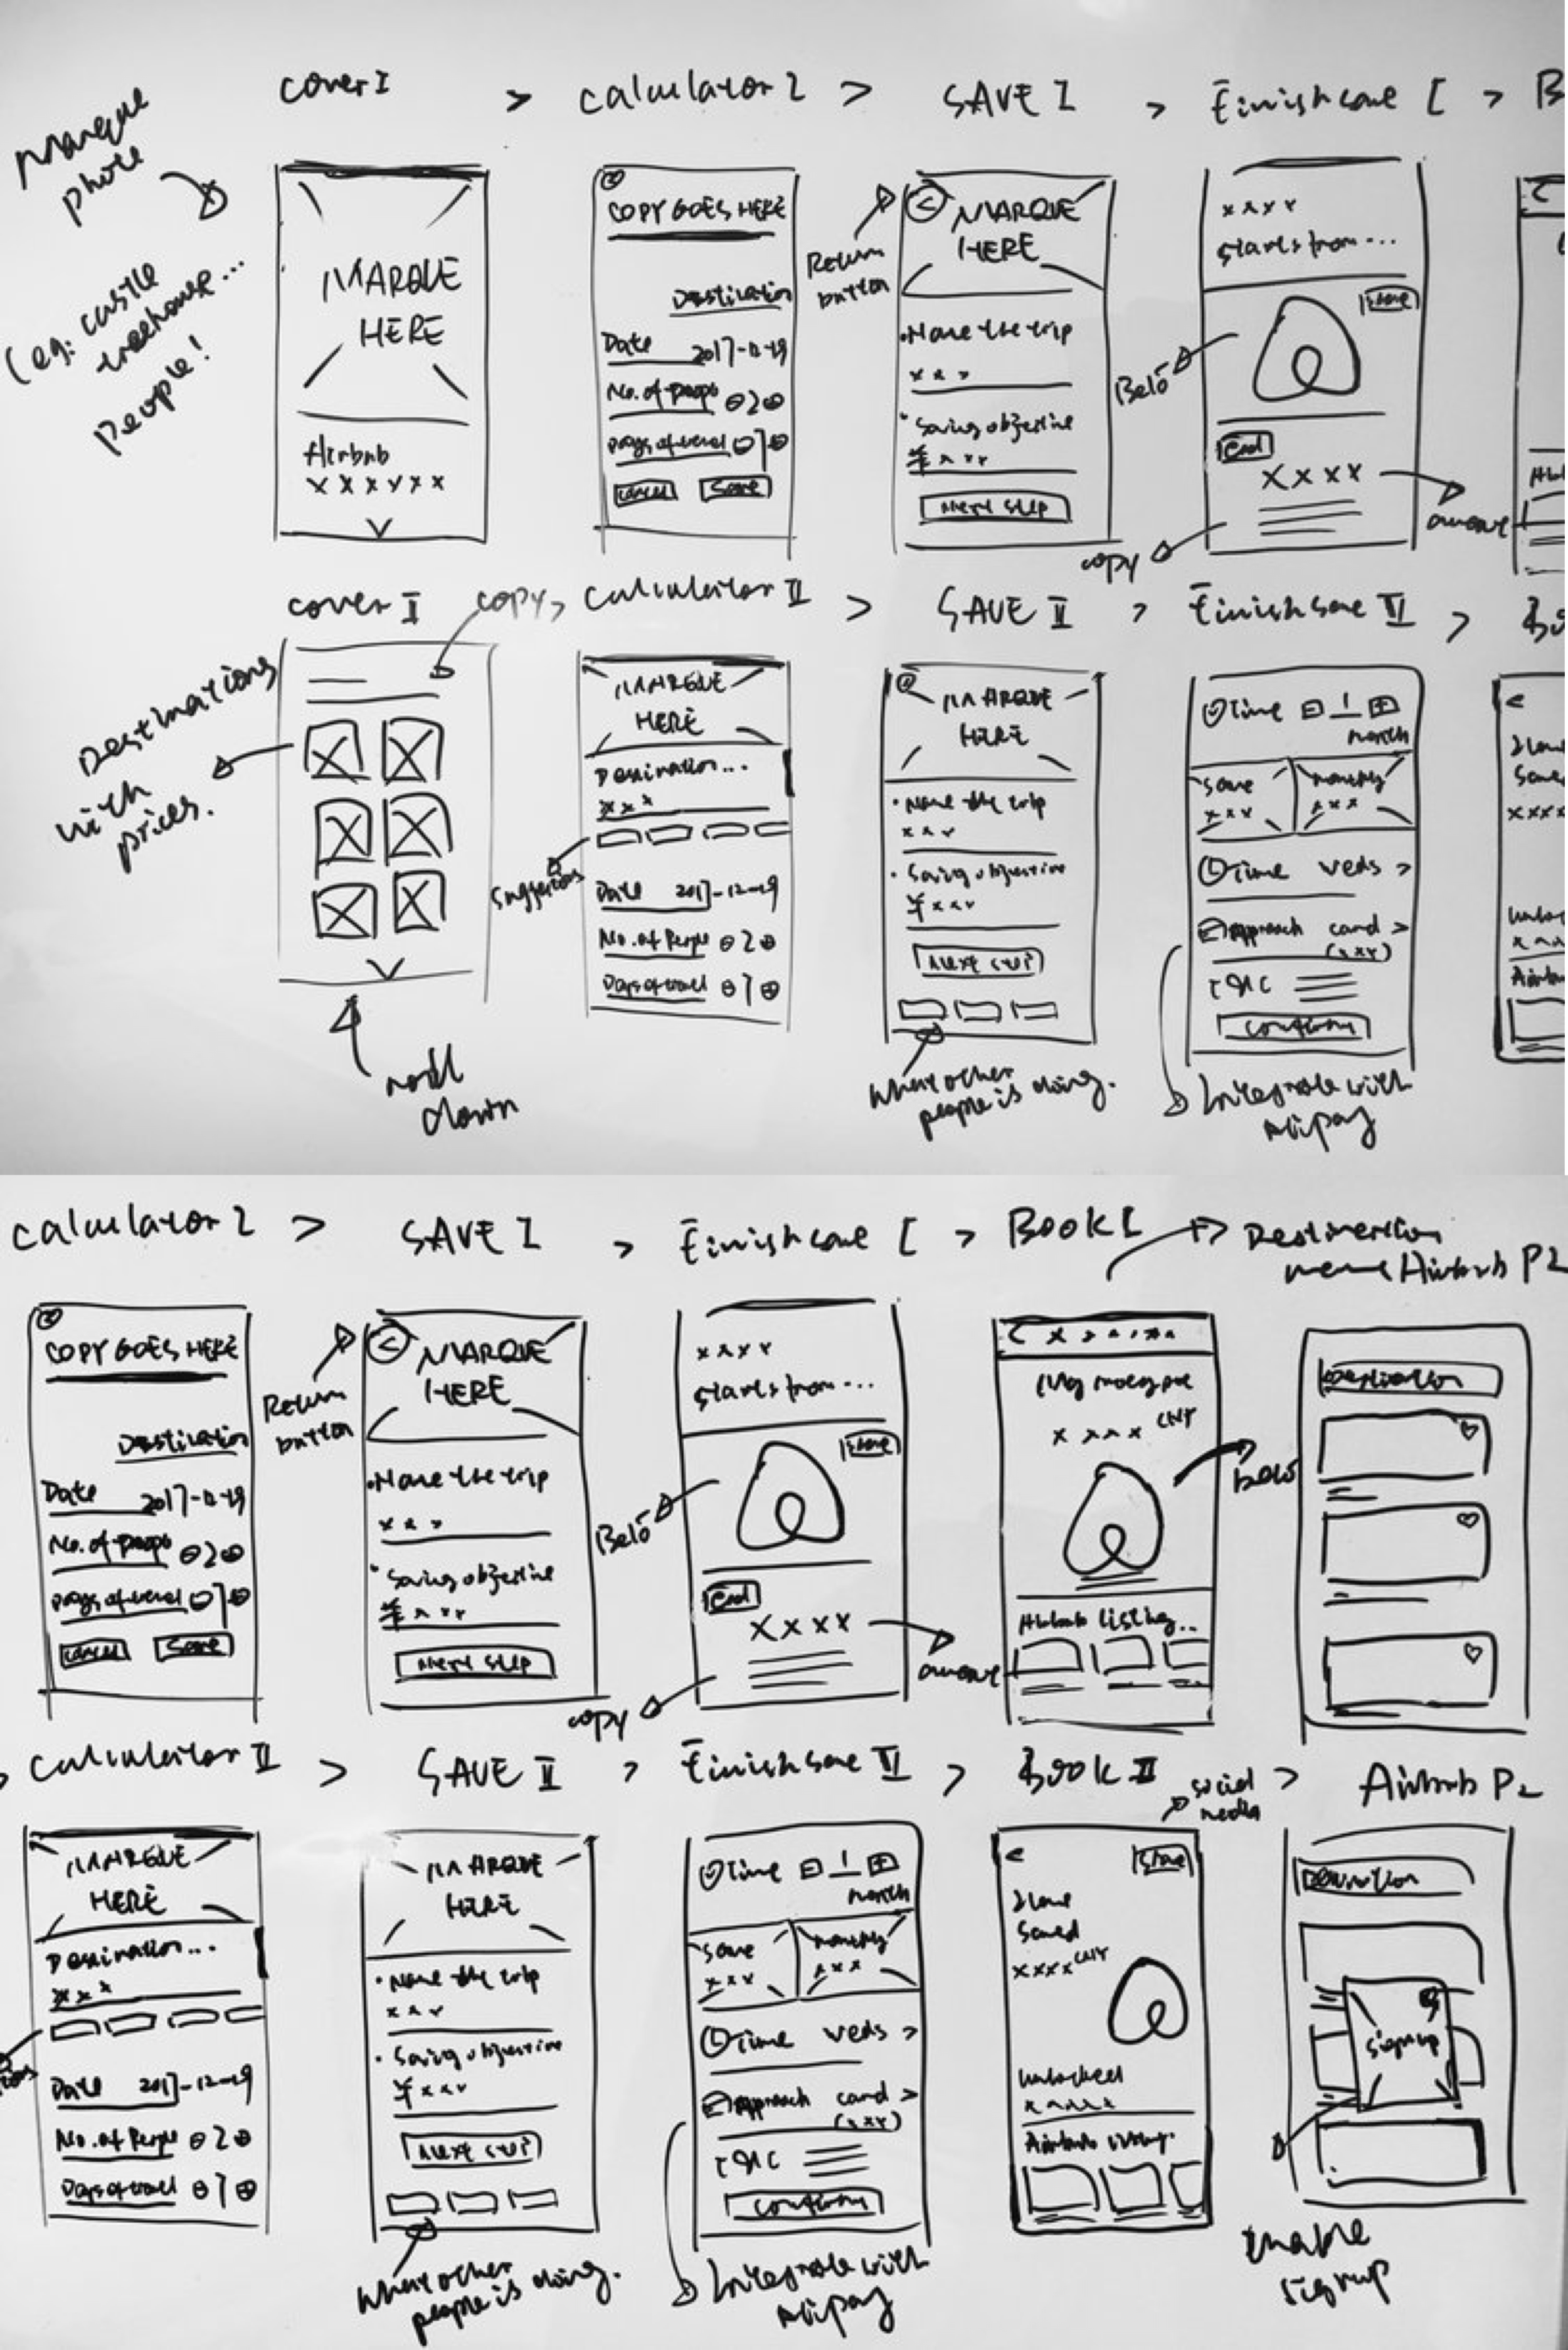 Marque
photo
(eg: castle
treehouse...
people!
cover I
>
calculator I
>
SAVE I
>
Finish save I
>
B
MARQUE
HERE
Airbnb
x x x x x x
COPY GOES HERE
Destination
Date 2017-12-19
No. of people ⊖ 2 ⊕
Days of travel ⊖ 7 ⊕
Cancel
Save
Return
button
<
MARQUE
HERE
• Name the trip
x x x
• Saving objective
¥ x x x
Next step
x x x x
Starts from...
Belo
End
x x x x
amount
copy
cover II
copy
>
calculator II
>
SAVE II
>
Finish save II
>
Bo
Destinations
with
prices.
roll
down
MARQUE
HERE
Destination...
x x x
Suggestions
Date 2017-12-19
No. of People ⊖ 2 ⊕
Days of travel ⊖ 7 ⊕
MARQUE
HERE
• Name the trip
x x x
• Saving objective
¥ x x x
Next step
What other
people is doing.
Time ⊟ 1 ⊞
month
Save
x x x
Monthly
x x x
Time
>
Approach card >
(x x x)
T&C
Confirm
Integrate with
Alipay
<
calculator I
>
SAVE I
>
Finish save I
>
BOOK I
Destination
Airbnb P2
COPY GOES HERE
Destination
Date 2017-12-19
No. of people ⊖ 2 ⊕
Days of travel ⊖ 7 ⊕
Cancel
Save
Return
button
<
MARQUE
HERE
• Name the trip
x x x
• Saving objective
¥ x x x
Next step
x x x x
Starts from...
Belo
End
x x x x
amount
copy
< x x x x x x
x x x x CNY
Belo
Airbnb listing...
Destination
calculator II
>
SAVE II
>
Finish save II
>
Book II
social
media
>
Airbnb P2
MARQUE
HERE
Destination...
x x x
Date 2017-12-19
No. of People ⊖ 2 ⊕
Days of travel ⊖ 7 ⊕
MARQUE
HERE
• Name the trip
x x x
• Saving objective
¥ x x x
Next step
What other
people is doing.
Time ⊟ 1 ⊞
month
Save
x x x
Monthly
x x x
Time
>
Approach card >
(x x x)
T&C
Confirm
Integrate with
Alipay
<
Share
I have
Saved
xxxx CNY
Unlocked
x x x x x
Airbnb listings
Destination
Signup
Enable
signup